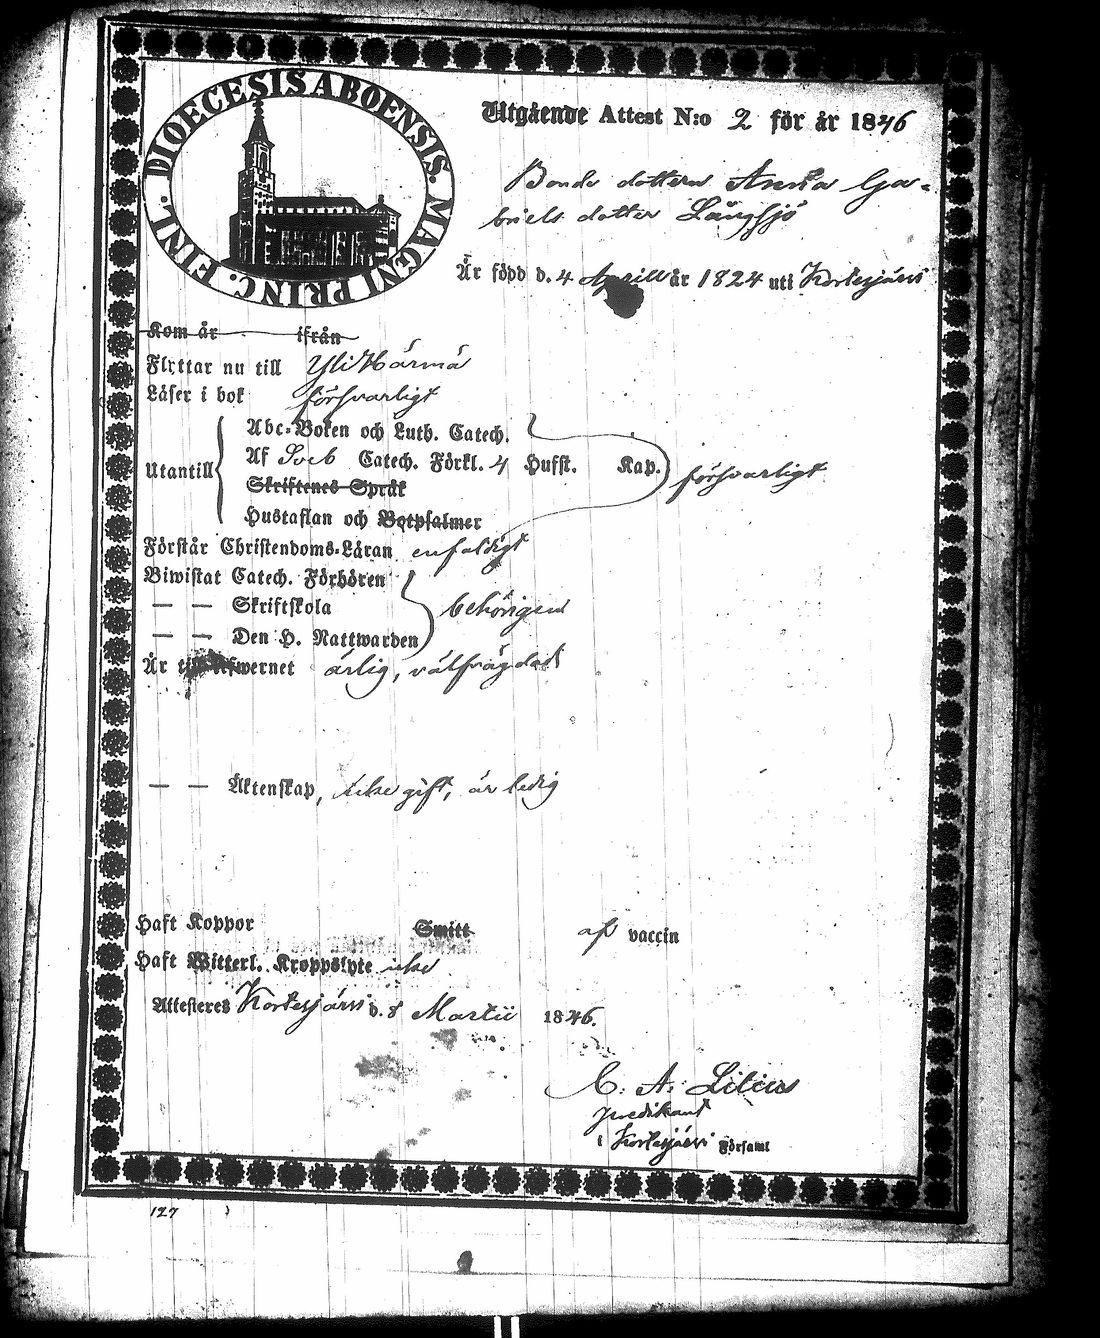 DIOECESIS ABOENSIS. MAGNI PRINC. FINL.
Utgående Attest N:o 2 för år 1846
Bonde dottern Anna Ga-
briels dotter Långsjö
Är född d. 4 Aprill år 1824 uti Kortesjärvi
Kom år ifrån
Flyttar nu till Yli Härmä
Läser i bok försvarligt
Abc-Boken och Luth. Catech.
Utantill Af Sveb Catech. Förkl. 4 Hufst. Kap. försvarligt
Skriftenes Språk
Hustaflan och Botpsalmer
Förstår Christendoms-Läran enfaldigt
Biwistat Catech. Förhören
— — Skriftskola behörigen
— — Den H. Nattwarden
Är till lefwernet ärlig, välfrägdad
— — Äktenskap, icke gift, är ledig
Haft Koppor Smitt af vaccin
Haft Witterl. Kroppslyte icke
Attesteres Kortesjärvi d. 8 Martii 1846.
C. A. Lilius
predikant
i Kortesjärvi Församl
127